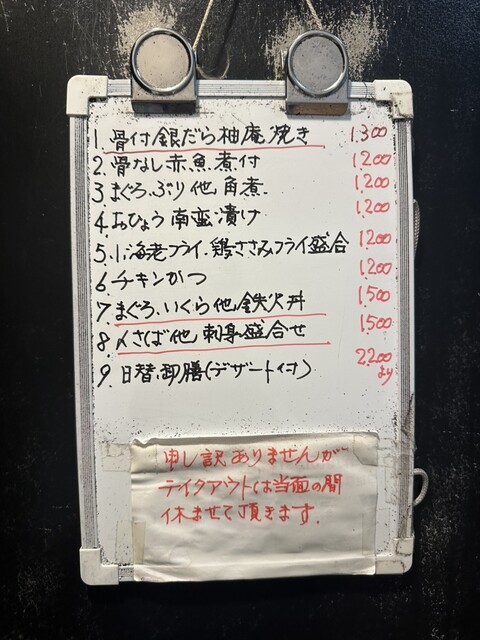 1. 骨付銀だら柚庵焼き 1.300
2. 骨なし赤魚煮付 1.200
3. まぐろ、ぶり他角煮 1.200
4. おひょう南蛮漬け 1.200
5. 小海老フライ、鶏ささみフライ盛合 1.200
6. チキンかつ 1.200
7. まぐろ、いくら他鉄火丼 1.500
8. 〆さば他刺身盛合せ 1.500
9. 日替御膳(デザート付) 2.200より
申し訳ありませんが
テイクアウトは当面の間
休ませて頂きます。